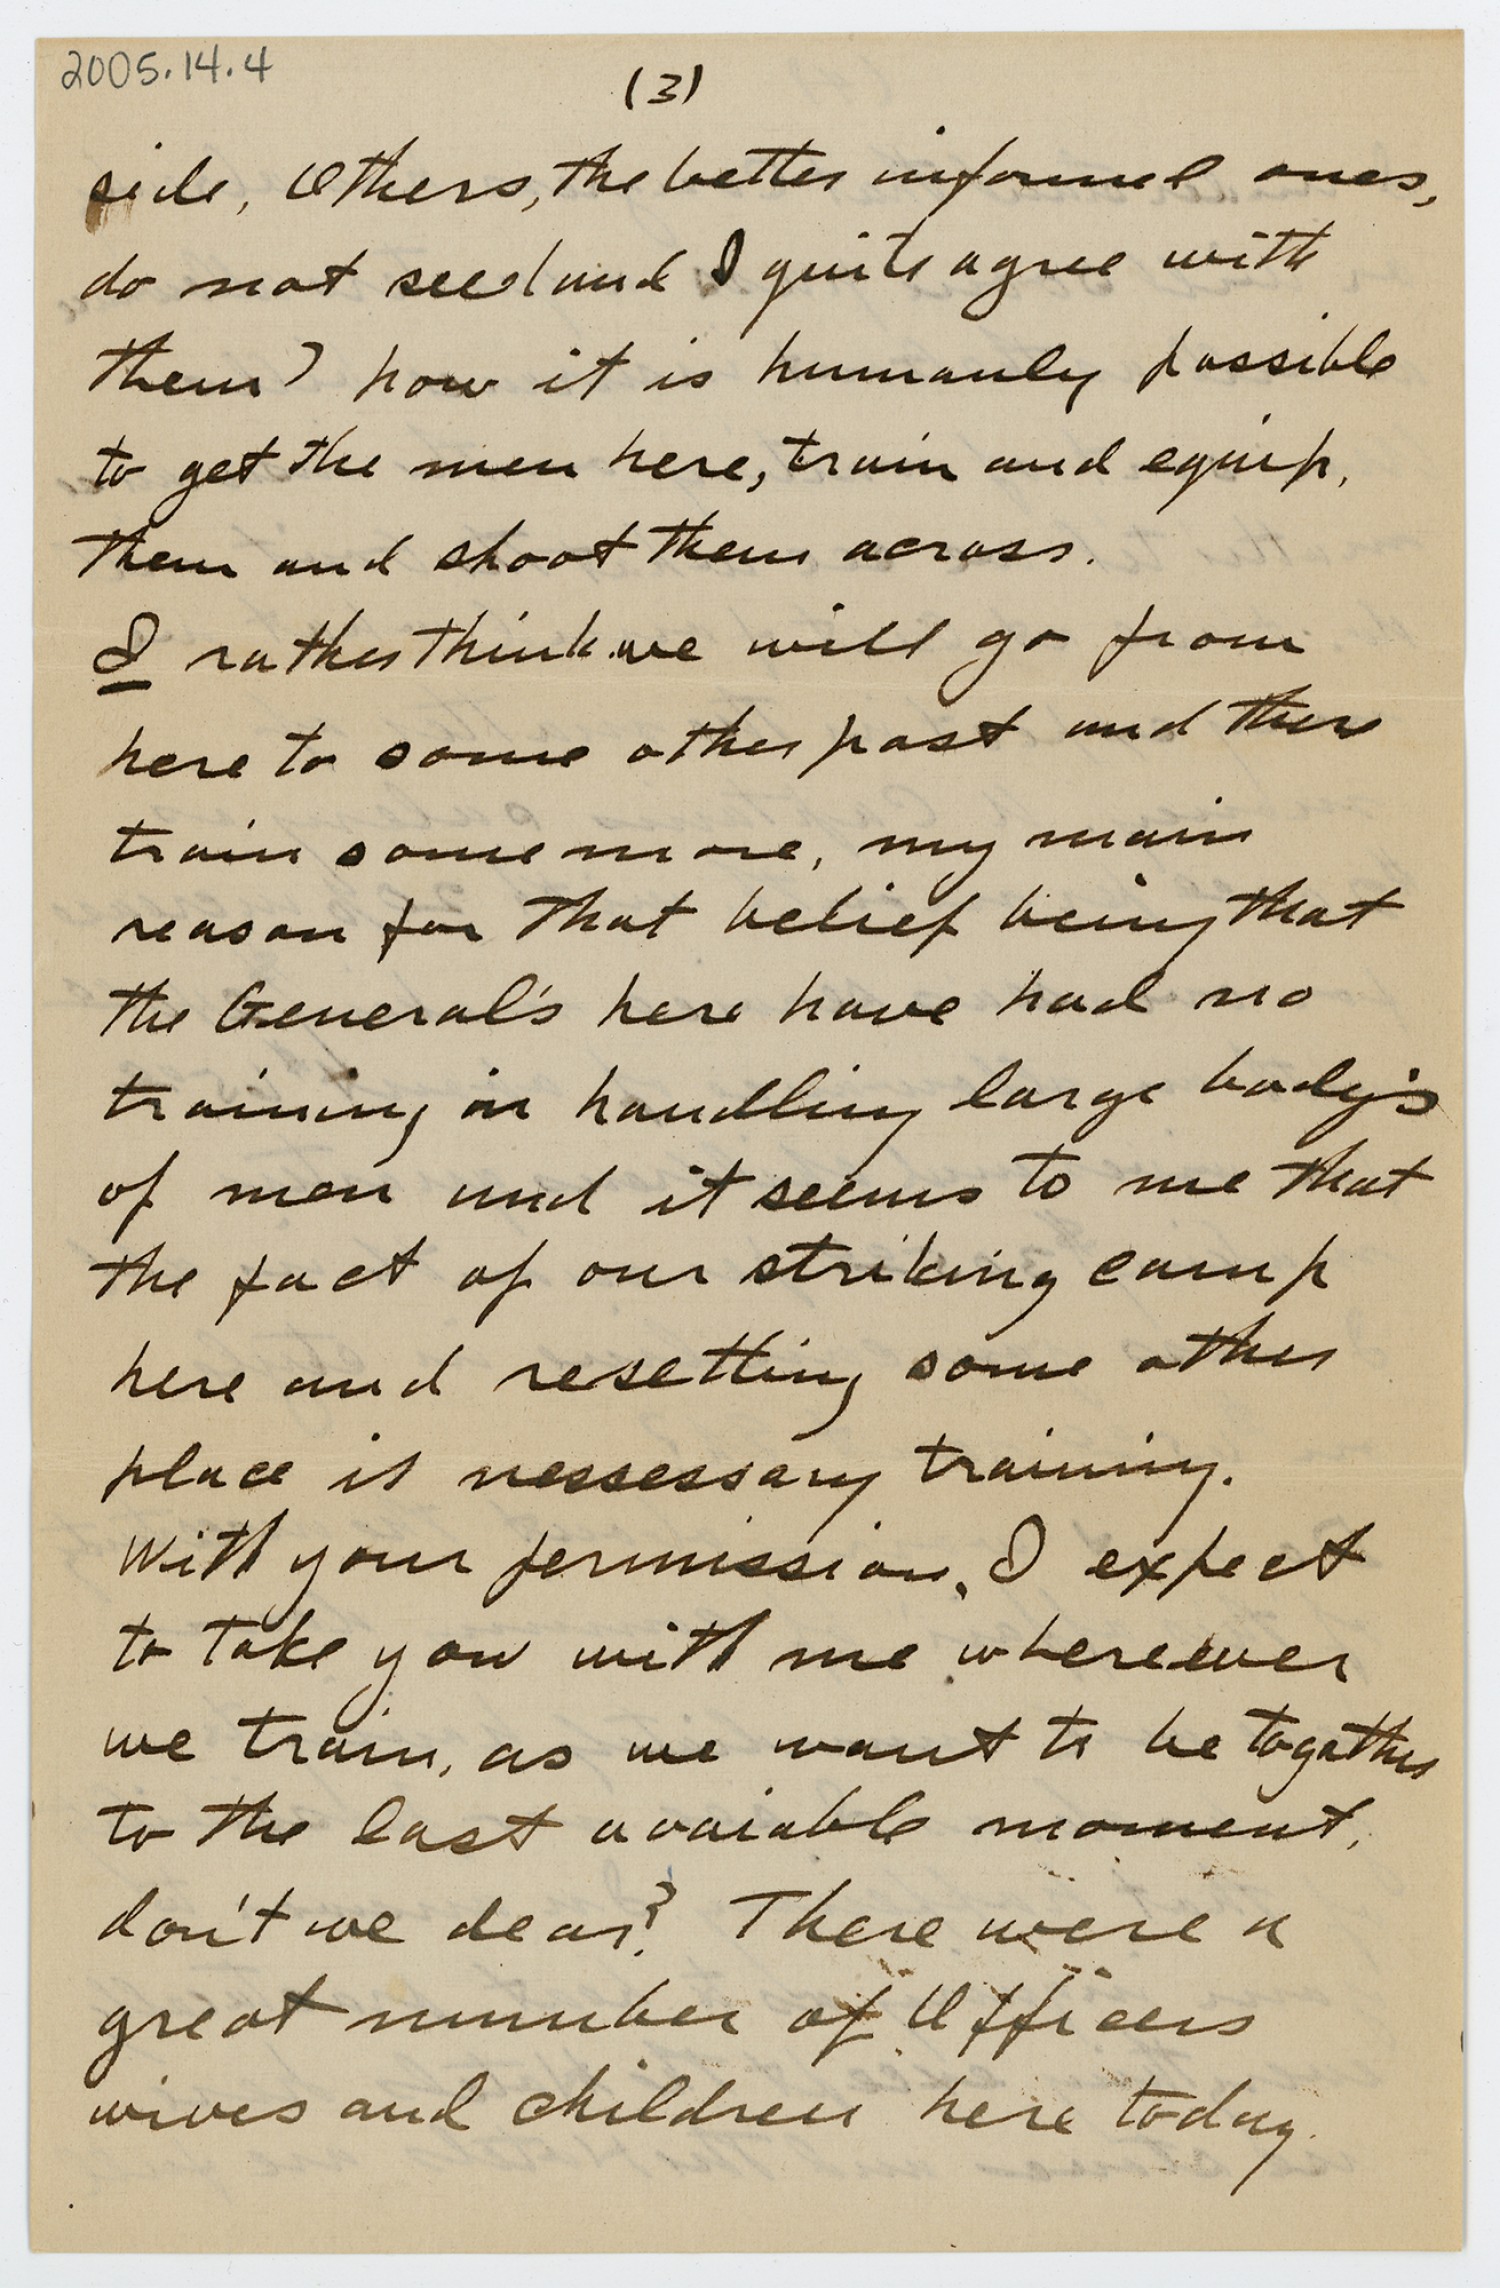 2005.14.4
(3)
side, Others, the better informed ones,
do not see (and I quite agree with
them) how it is humanly possible
to get the men here, train and equip,
them and shoot them across.
I rather think we will go from
here to some other post and there
train some more, my main
reason for that belief being that
the General's here have had no
training in handling large body's
of men and it seems to me that
the fact of our striking camp
here and resetting some other
place is nessessary training.
With your permission, I expect
to take you with me wherever
we train, as we want to be togather
to the last avaiable moment,
don't we dear? There were a
great number of Officers
wives and children here today.